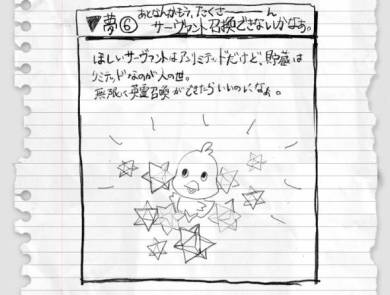 ▼夢⑥ あとなんかもう、たくさーーーん
サーヴァント召喚できないかなぁ。
ほしいサーヴァントはアンリミテッドだけど、貯蔵は
リミテッドなのが人の世。
無限に英霊召喚ができたらいいのになぁ。